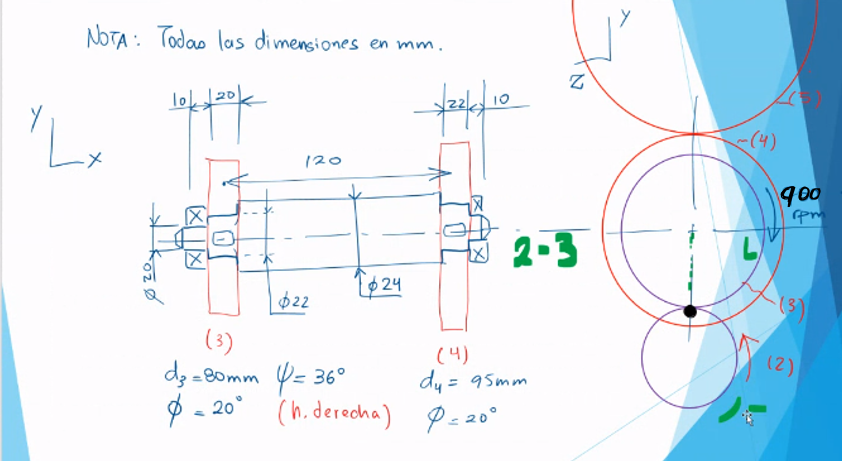 NOTA: Todas las dimensiones en mm.
Y
X
10
20
22
10
120
X
X
X
X
ϕ20
ϕ22
ϕ24
(3)
(4)
d3 = 80mm ψ = 36°
ϕ = 20° (h. derecha)
d4 = 95mm
ϕ = 20°
Y
Z
(5)
(4)
900
rpm
2-3
L
(3)
(2)